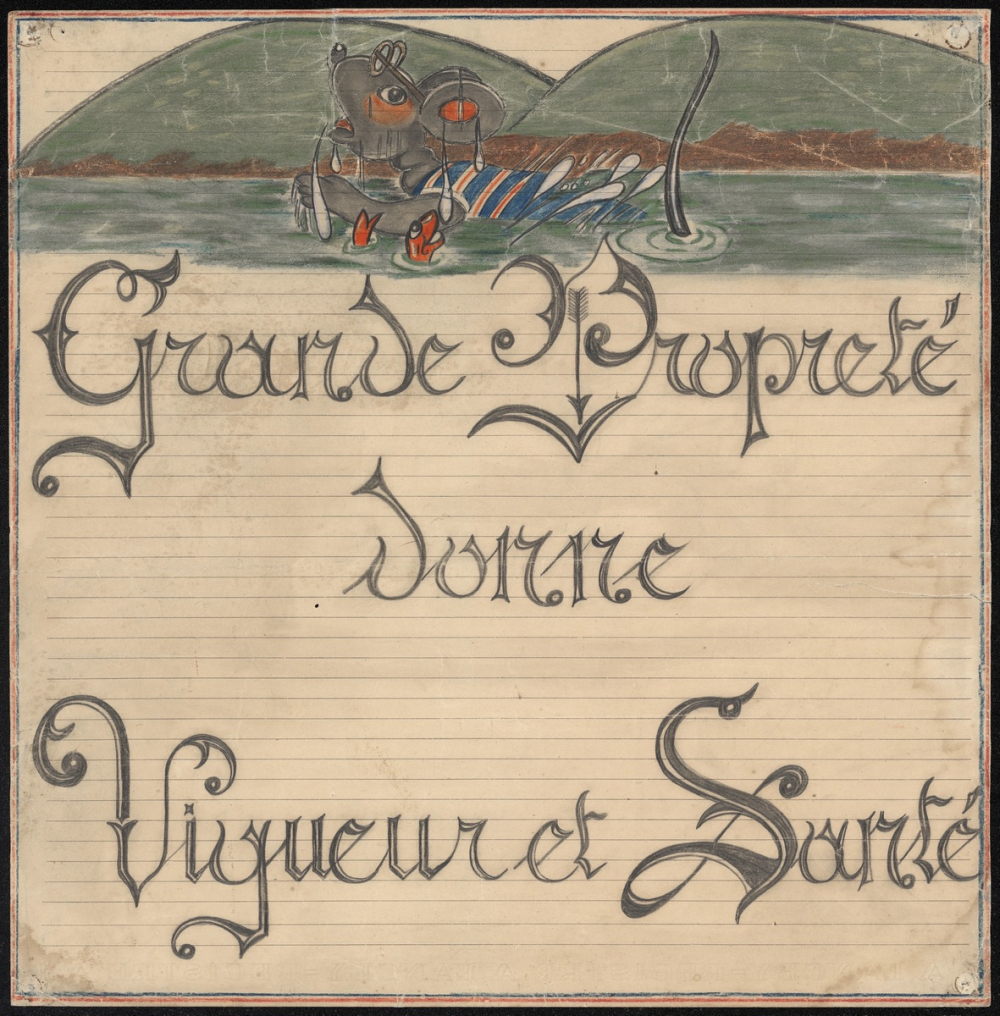 Grande Propreté
donne
Vigueur et Santé